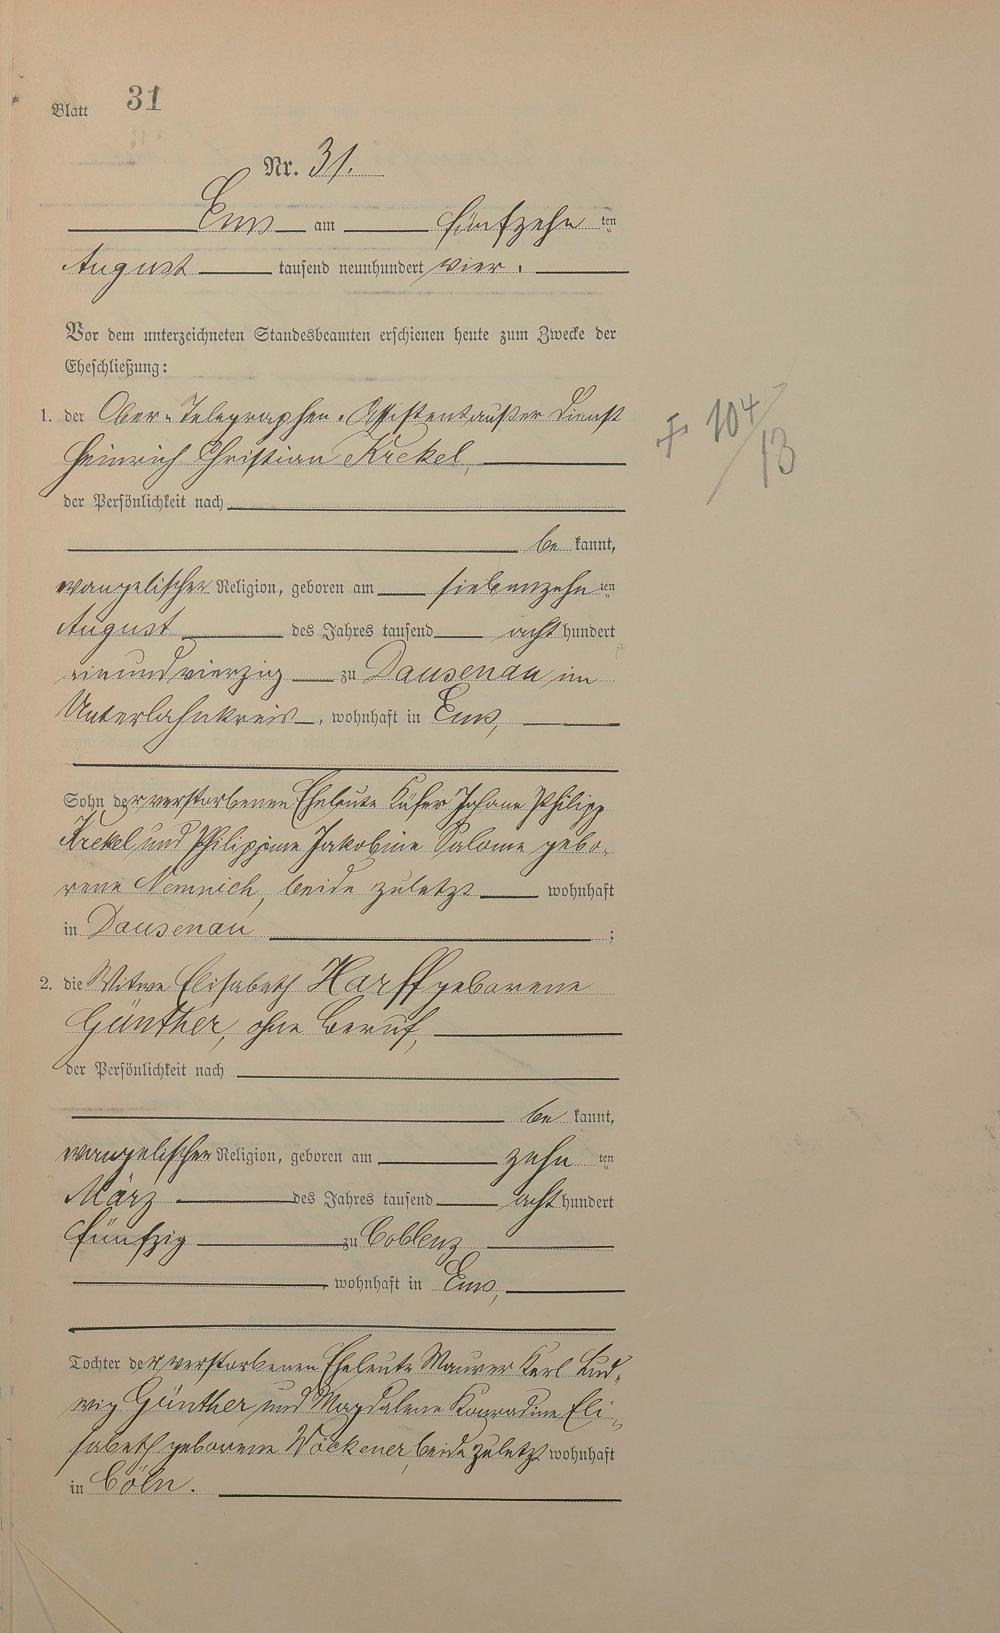 Blatt 31
Nr. 31.
Ems am fünfzehn ten
August tausend neunhundert vier.
Vor dem unterzeichneten Standesbeamten erschienen heute zum Zwecke der
Eheschließung:
1. der Ober-Telegraphen-Assistent außer Dienst
Heinrich Christian Krekel,
der Persönlichkeit nach
be kannt,
evangelischer Religion, geboren am siebenzehn ten
August des Jahres tausend acht hundert
einundvierzig zu Dausenau im
Unterlahnkreis, wohnhaft in Ems,
Sohn der verstorbenen Eheleute Küfer Johann Philipp
Krekel und Philippine Jakobine Salome gebo-
rene Nemnich, beide zuletzt wohnhaft
in Dausenau ;
2. die Witwe Elisabeth Harff geborene
Günther, ohne Beruf,
der Persönlichkeit nach
be kannt,
evangelischer Religion, geboren am zehn ten
März des Jahres tausend acht hundert
fünfzig zu Coblenz
, wohnhaft in Ems,
Tochter der verstorbenen Eheleute Maurer Karl Lud-
wig Günther und Magdalene Konradine Eli-
sabeth geborene Wöckener, beide zuletzt wohnhaft
in Cöln.
+ 104/13